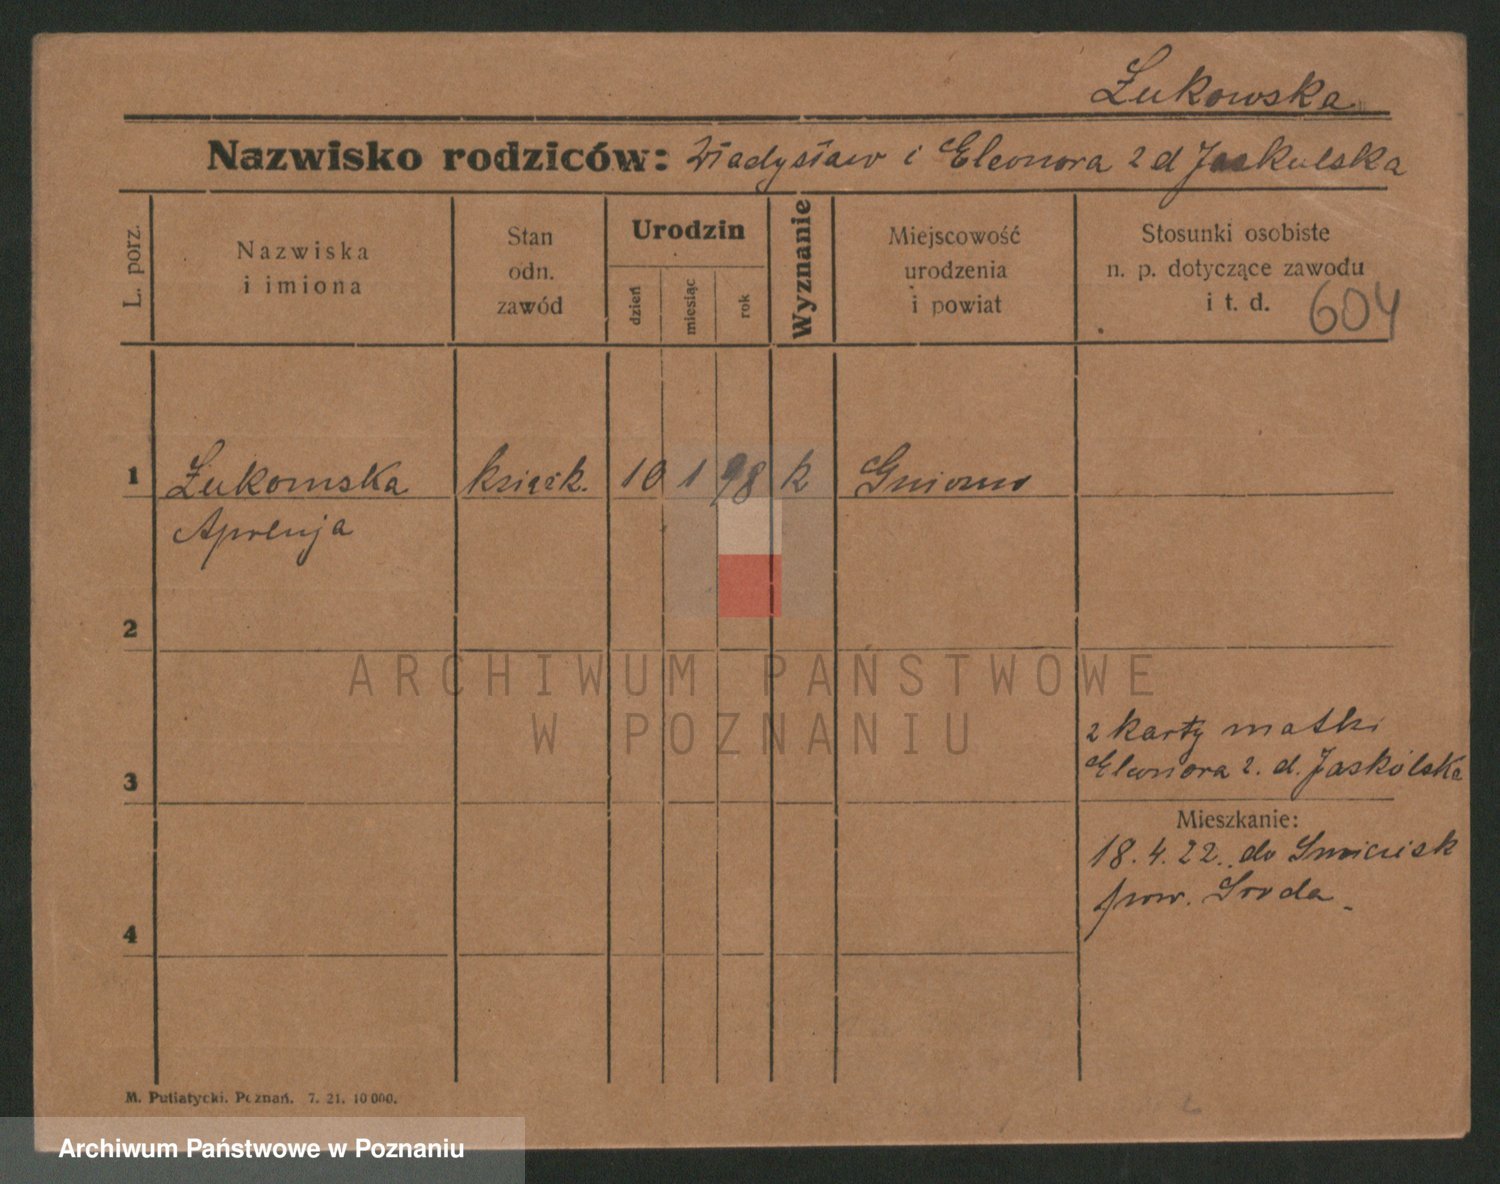 Żukowska
Nazwisko rodziców: Władysław i Eleonora 2 d Jaskulska
L. porz.
Nazwiska
i imiona
Stan
odn.
zawód
Urodzin
dzień
miesiąc
rok
Wyznanie
Miejscowość
urodzenia
i powiat
Stosunki osobiste
n. p. dotyczące zawodu
i t. d.
604
1 Żukowska książk. 10 1 98 k
2
3
z karty matki
Eleonora 2. d. Jaskólska
Mieszkanie:
18.4.22. do
pow. Sroda
4
M. Putiatycki. Poznań. 7. 21. 10 000.
ARCHIWUM PAŃSTWOWE
W POZNANIU
Archiwum Państwowe w Poznaniu